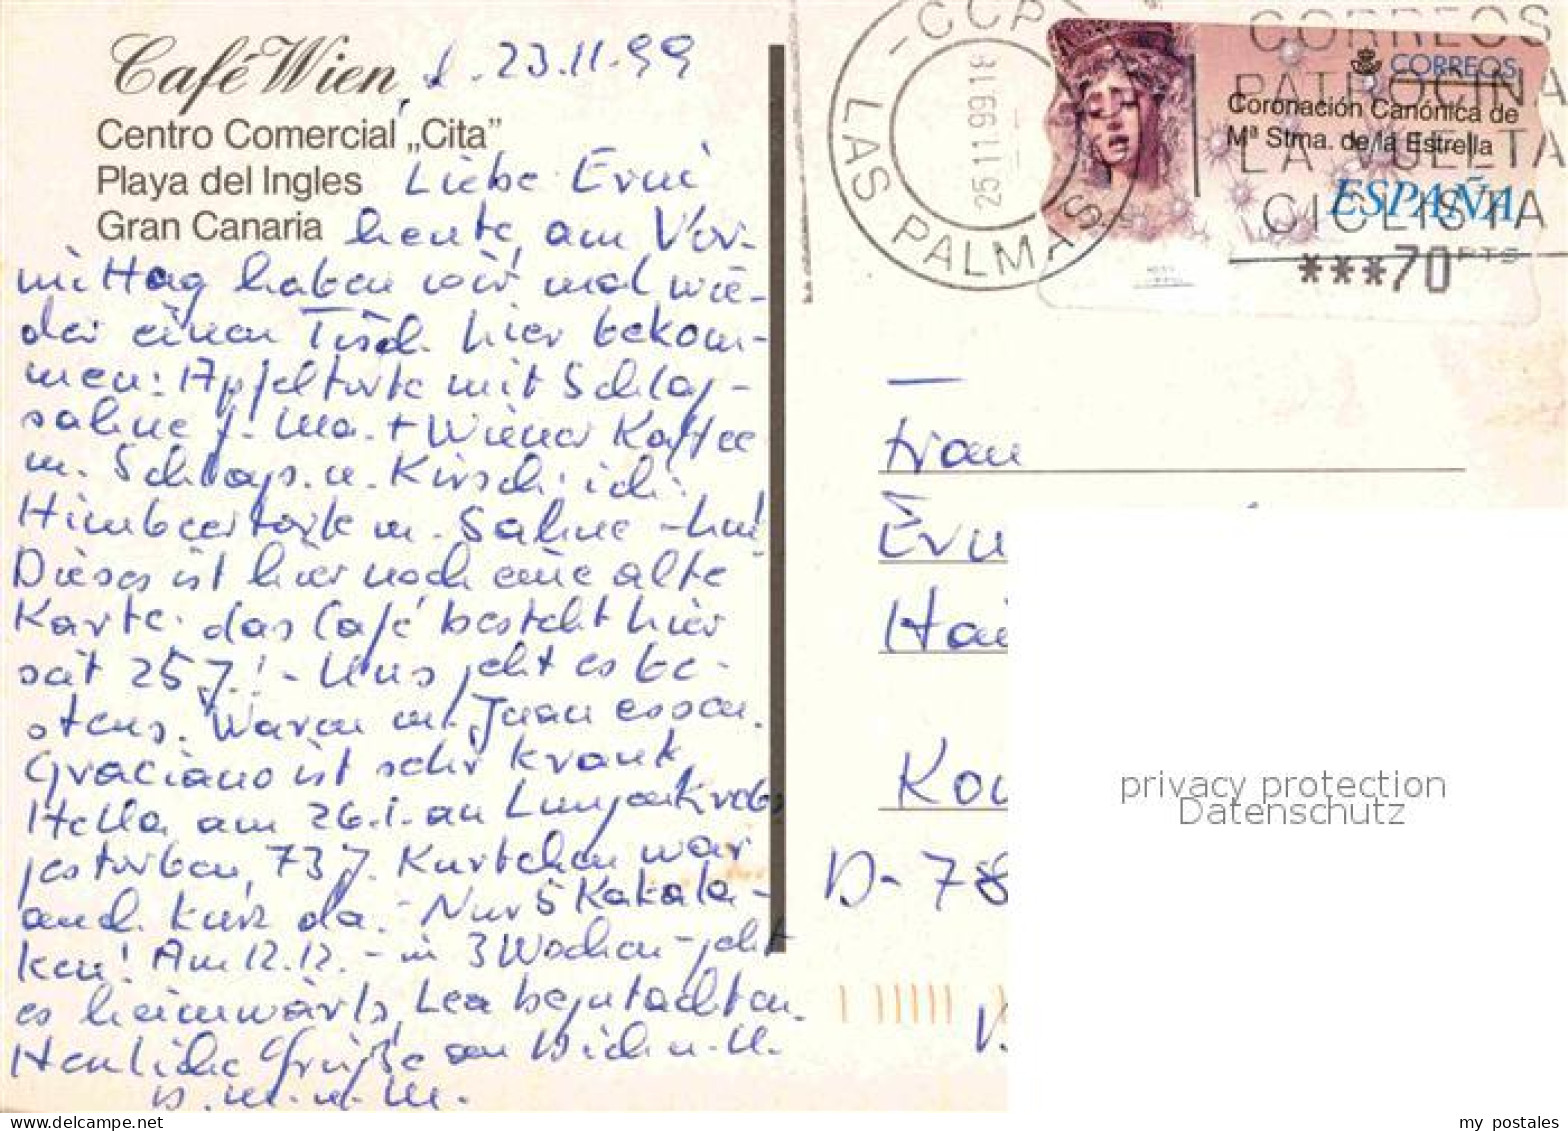 Café Wien, d. 23.11.99
Centro Comercial „Cita”
Playa del Ingles Liebe Erni
Gran Canaria heute, am Vor-
mittag haben wir mal wie-
der einen Tisch hier bekom-
men: 1 Apfeltorte mit Schlag-
sahne f. Ma. + Wiener Kaffee
m. Schlags. u. Kirsch. ich:
Himbeertorte m. Sahne - hm!
Dieses ist hier noch eine alte
Karte. das Café besteht hier
seit 25 J.! - Uns geht es be-
stens. Waren m. Juan essen.
Graciano ist sehr krank,
Hella am 26.1. an Lungenkrebs
gestorben, 73 J. Kurtchen war
auch kurz da. - Nur 5 Kakala-
ken! Am 12.12. - in 3 Wochen - geht
es heimwärts, Lea begutachten.
Herzliche Grüße an Dich u. U.
D. M. u. M.
CCP
LAS PALMAS
25 11 99.18
CORREOS
PATROCINA
LA VUELTA
CICLISTA
CORREOS
Coronación Canónica de
Mª Stma. de la Estrella
ESPAÑA
***70 PTS
Frau
D- 78
privacy protection
Datenschutz
my postales